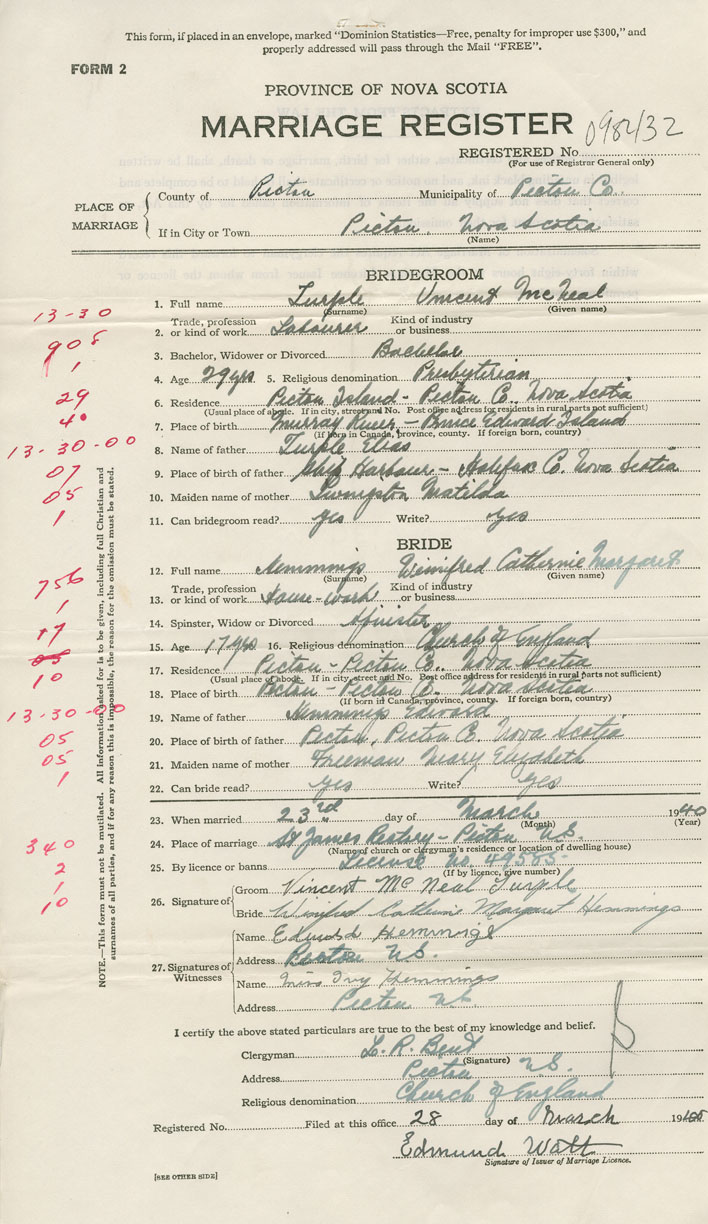 This form, if placed in an envelope, marked "Dominion Statistics—Free, penalty for improper use $300," and
properly addressed will pass through the Mail "FREE".
FORM 2
PROVINCE OF NOVA SCOTIA
MARRIAGE REGISTER
098432
REGISTERED No
(For use of Registrar General only)
PLACE OF MARRIAGE
County of Pictou Municipality of Pictou Co.
If in City or Town Pictou. Nova Scotia
(Name)
BRIDEGROOM
13-30
1. Full name Turple Vincent McNeal
(Surname) (Given name)
2. Trade, profession or kind of work Labourer Kind of industry or business
908
3. Bachelor, Widower or Divorced Bachelor
1
4. Age 29 yrs 5. Religious denomination Presbyterian
29
6. Residence Pictou Island - Pictou Co., Nova Scotia
(Usual place of abode. If in city, street and No. Post office address for residents in rural parts not sufficient)
40
7. Place of birth Murray River - Prince Edward Island
(If born in Canada, province, county. If foreign born, country)
13-30-00
8. Name of father Turple Elias
07
9. Place of birth of father Ship Harbour - Halifax Co. Nova Scotia
05
10. Maiden name of mother Livingston Matilda
1
11. Can bridegroom read? yes Write? yes
BRIDE
12. Full name Hemmings Winifred Catherine Margaret
(Surname) (Given name)
756
13. Trade, profession or kind of work House-work Kind of industry or business
1
14. Spinster, Widow or Divorced Spinster
17
15. Age 17 yrs 16. Religious denomination Church of England
05
17. Residence Pictou - Pictou Co., Nova Scotia
(Usual place of abode. If in city, street and No. Post office address for residents in rural parts not sufficient)
10
18. Place of birth Pictou - Pictou Co. Nova Scotia
(If born in Canada, province, county. If foreign born, country)
13-30-00
19. Name of father Hemmings Edward
05
20. Place of birth of father Pictou, Pictou Co. Nova Scotia
05
21. Maiden name of mother Freeman Mary Elizabeth
1
22. Can bride read? yes Write? yes
23. When married 23rd day of March 1940
(Month) (Year)
340
24. Place of marriage St James Rectory - Pictou N.S.
(Name of church or clergyman's residence or location of dwelling house)
2
25. By licence or banns License No. 49585
(If by licence, give number)
1
26. Signature of
Groom Vincent McNeal Turple
10
Bride Winifred Catherine Margaret Hemmings
27. Signatures of Witnesses
Name Edward Hemmings
Address Pictou N.S.
Name Miss Ivy Hemmings
Address Pictou N.S.
I certify the above stated particulars are true to the best of my knowledge and belief.
Clergyman L. R. Bent
(Signature)
Address Pictou N.S.
Religious denomination Church of England
Registered No. Filed at this office 28 day of March 1940
Edmund Watt
Signature of Issuer of Marriage Licence.
[SEE OTHER SIDE]
NOTE.—This form must not be mutilated. All information asked for is to be given, including full Christian and
surnames of all parties, and if for any reason this is impossible, the reason for the omission must be stated.